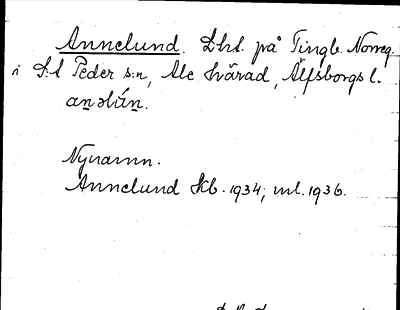 Annelund. Lht. på Tingb. Norreg.
i S:t Peder s:n, Ale härad, Älfsborgs l.
Nynamn.
Annelund Kb. 1934; ml. 1936.